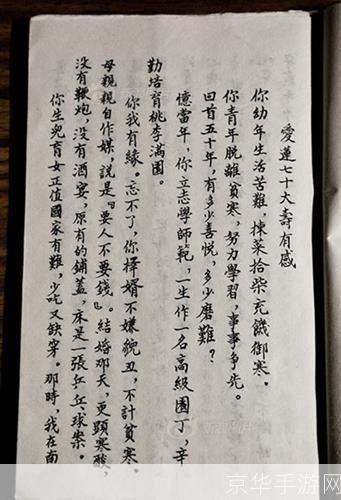 愛蓮七十大壽有感
你幼年生活苦難，揀菜拾柴充饑御寒。
你青年脫離貧寒，努力學習，事事爭先。
回首五十年，有多少喜悅，多少磨難？
憶當年，你立志學師範，一生作一名高級園丁，辛
勤培育桃李滿園。
你我有緣。忘不了，你擇婿不嫌貌丑，不計貧寒。
母親親自作媒，說是『要人不要錢』。結婚那天，更顯寒酸，
没有鞭炮，没有酒宴，原有的鋪蓋，床是一張乒乓球案。
你生兒育女正值國家有難，少吃又缺穿。那時，我在南
京华手游网